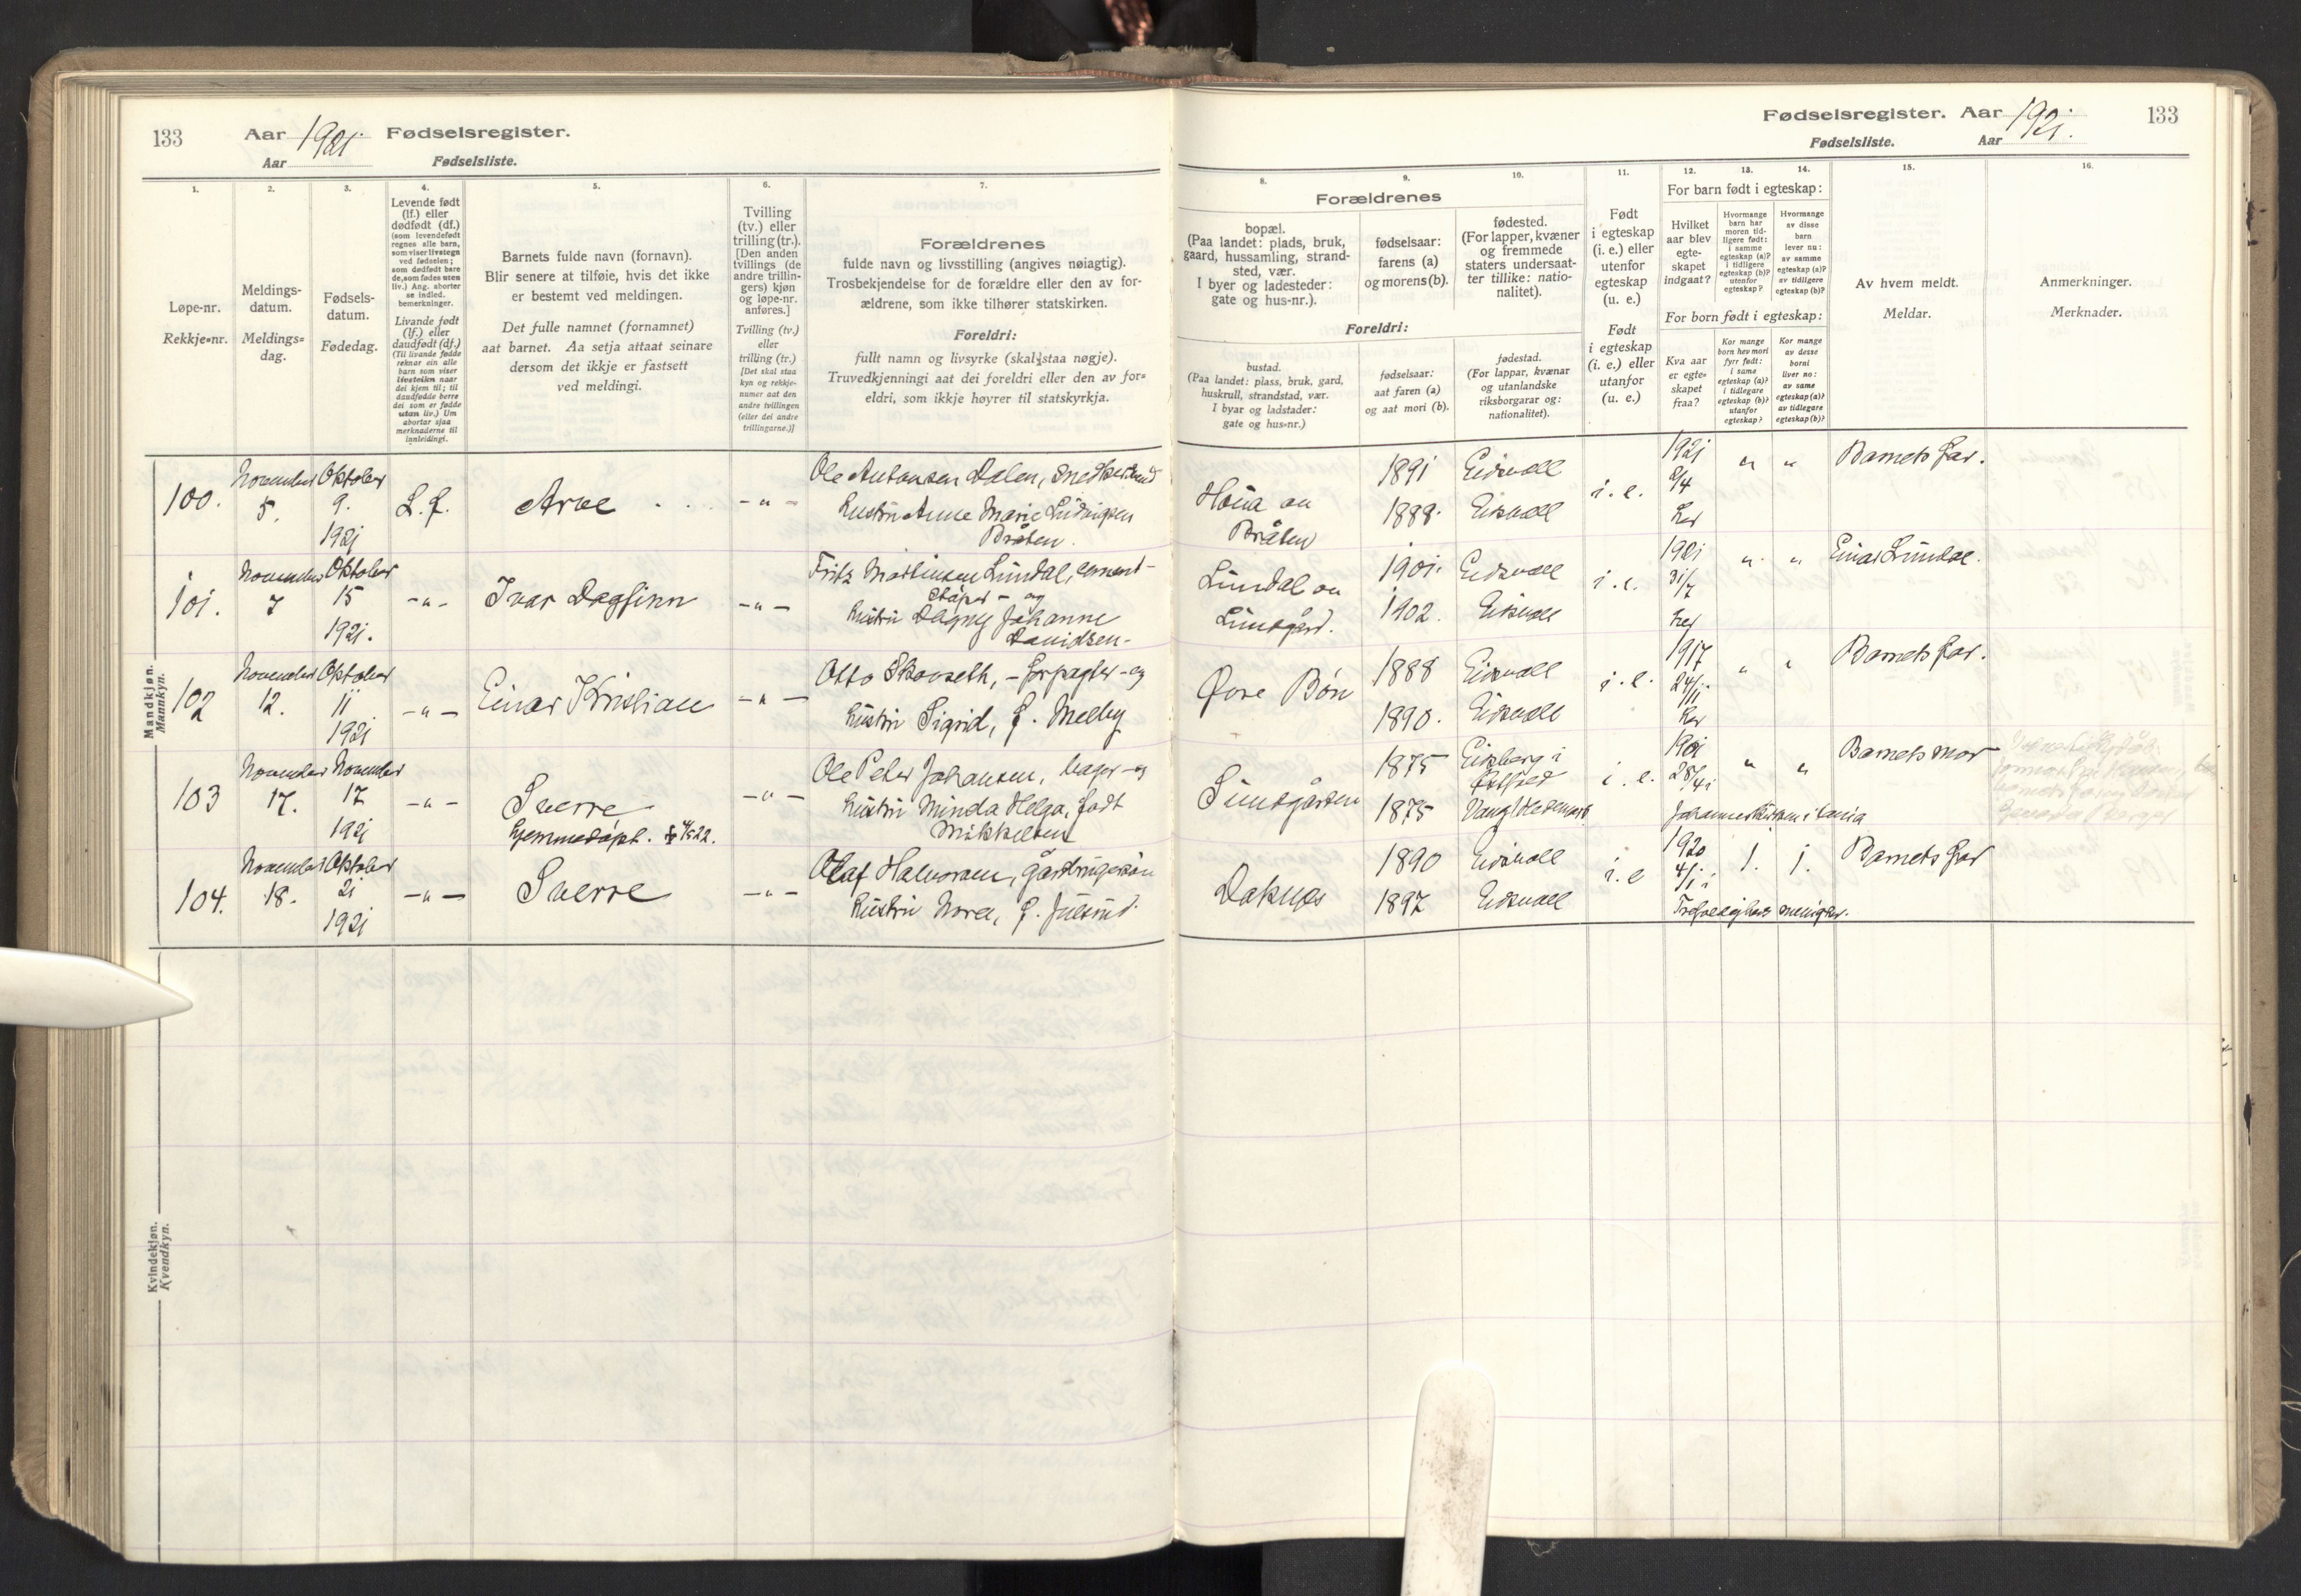 133 Aar 1921 Fødselsregister.
Aar Fødselsliste.
1. 2. 3. 4. 5. 6. 7.
Løpe-nr.
Rekkje-nr.
Meldings-
datum.
Meldings-
dag.
Fødsels-
datum.
Fødedag.
Levende født
(lf.) eller
dødfødt (df.)
(som levendefødt
regnes alle barn,
som viser livstegn
ved fødselen;
som dødfødt bare
de, som fødes uten
liv.) Ang. aborter
se indled.
bemerkninger.
Livande født
(lf.) eller
daudfødt (df.)
(Til livande fødde
reknar ein alle
barn som viser
livsteikn naar
dei kjem til; til
daudfødde berre
dei som er fødde
utan liv.) Um
abortar sjaa
merknaderne til
innleidingi.
Barnets fulde navn (fornavn).
Blir senere at tilføie, hvis det ikke
er bestemt ved meldingen.
Det fulle namnet (fornamnet)
aat barnet. Aa setja attaat seinare
dersom det ikkje er fastsett
ved meldingi.
Tvilling
(tv.) eller
trilling (tr.).
[Den anden
tvillings (de
andre trillin-
gers) kjøn
og løpe-nr.
anføres.]
Tvilling (tv.)
eller
trilling (tr.)
[Det skal staa
kyn og rekkje-
numer aat den
andre tvillingen
(eller dei andre
trillingarne.)]
Forældrenes
fulde navn og livsstilling (angives nøiagtig).
Trosbekjendelse for de forældre eller den av for-
ældrene, som ikke tilhører statskirken.
Foreldri:
fullt namn og livsyrke (skal staa nøgje).
Truvedkjenningi aat dei foreldri eller den av for-
eldri, som ikkje høyrer til statskyrkja.
Mandkjøn.
Mannkyn.
100. November 5. Oktober 9. 1921 L.f. Arve - " -
Ole Antonsen Dalen, snedker
Hustru Anne Marie Ludvigsen
Bråten.
101. November 7 Oktober 15 1921. - " - Ivar Dagfinn - " -
Fritz Martinsen Lundal, cement-
støper - og
Hustru Dagny Johanne
Davidsen -
102 November 12. Oktober 11 1921 - " - Einar Kristian - " -
Otto Skovseth, - forpagter - og
Hustru Sigrid, f. Melby
103 November 17. November 17 1921 - " - Sverre - " -
Hjemmedøpt.
Ole Peter Johansen, bager - og
Hustru Minda Helga, født
Mikkelsen
104. November 18. Oktober 21 1921 - " - Sverre - " -
Olaf Halvorsen, gårdbrugersøn
Hustru Nora, f. Julsrud.
Kvindekjøn.
Kvendkyn.
Fødselsregister. Aar 1921. 133
Fødselsliste. Aar
8. 9. 10. 11. 12. 13. 14. 15. 16.
Forældrenes
bopæl.
(Paa landet: plads, bruk,
gaard, hussamling, strand-
sted, vær.
I byer og ladesteder:
gate og hus-nr.).
fødselsaar:
farens (a)
og morens (b).
fødested.
(For lapper, kvæner
og fremmede
staters undersaat-
ter tillike: natio-
nalitet).
Foreldri:
bustad.
(Paa landet: plass, bruk, gard,
huskrull, strandstad, vær.
I byar og ladstader:
gate og hus-nr.)
fødselsaar:
aat faren (a)
og aat mori (b).
fødestad.
(For lappar, kvænar
og utanlandske
riksborgarar og:
nationalitet).
Født
i egteskap
(i. e.) eller
utenfor
egteskap
(u. e.)
Født
i egteskap
(i. e.) eller
utanfor
(u. e.)
For barn født i egteskap:
Hvilket
aar blev
egte-
skapet
indgaat?
Hvormange
barn har
moren tid-
ligere født:
i samme
egteskap (a)?
i tidligere
egteskap (b)?
utenfor
egteskap?
Hvormange
av disse
barn
lever nu:
av samme
egteskap (a)?
av tidligere
egteskap (b)?
For born født i egteskap:
Kva aar
er egte-
skapet
fraa?
Kor mange
born hev mori
fyrr født:
i same
egteskap (a)?
i tidlegare
egteskap (b)?
utanfor
egteskap?
Kor mange
av desse
borni
liver no:
av same
egteskap (a)?
av tidlegare
egteskap (b)?
Av hvem meldt.
Meldar.
Anmerkninger.
Merknader.
Bråten 1891 1888. Eidsvoll Eidsvoll i. e. 1921 2/4 her " " Barnets far.
Lundal
1901. 1902. Eidsvoll Eidsvoll i. e. 1921 31/7 her " " Einar Lundal.
Øvre Bøn 1888 1890. Eidsvoll Eidsvoll i. e. 1917 her " " Barnets far.
Sundgården 1875 1875 Eidsberg i Østfold Vang Hedemark i. e. " " Barnets mor
Doknes 1890 1897 Eidsvoll Eidsvoll i. e 1920 1. 1. Barnets far
menighet.